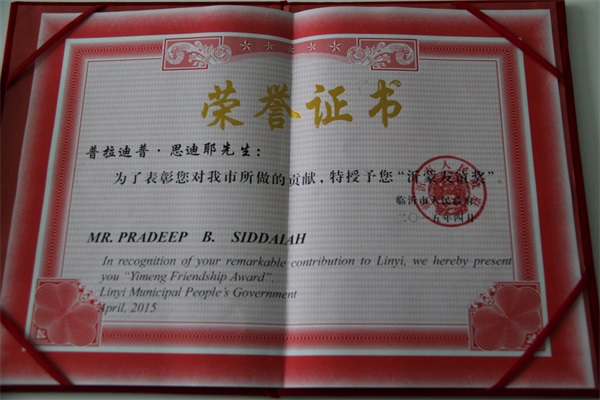 荣誉证书
普拉迪普·思迪耶先生：
为了表彰您对我市所做的贡献，特授予您“沂蒙友谊奖”。
临沂市人民政府
二〇一五年四月
MR. PRADEEP B. SIDDAIAH
In recognition of your remarkable contribution to Linyi, we hereby present
you “Yimeng Friendship Award”.
Linyi Municipal People's Government
April, 2015